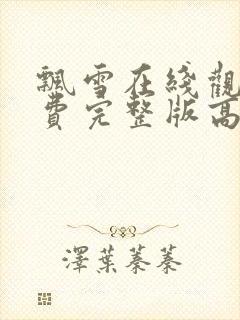 飄雪在綫觀
費完整版高
澤葉蓁蓁